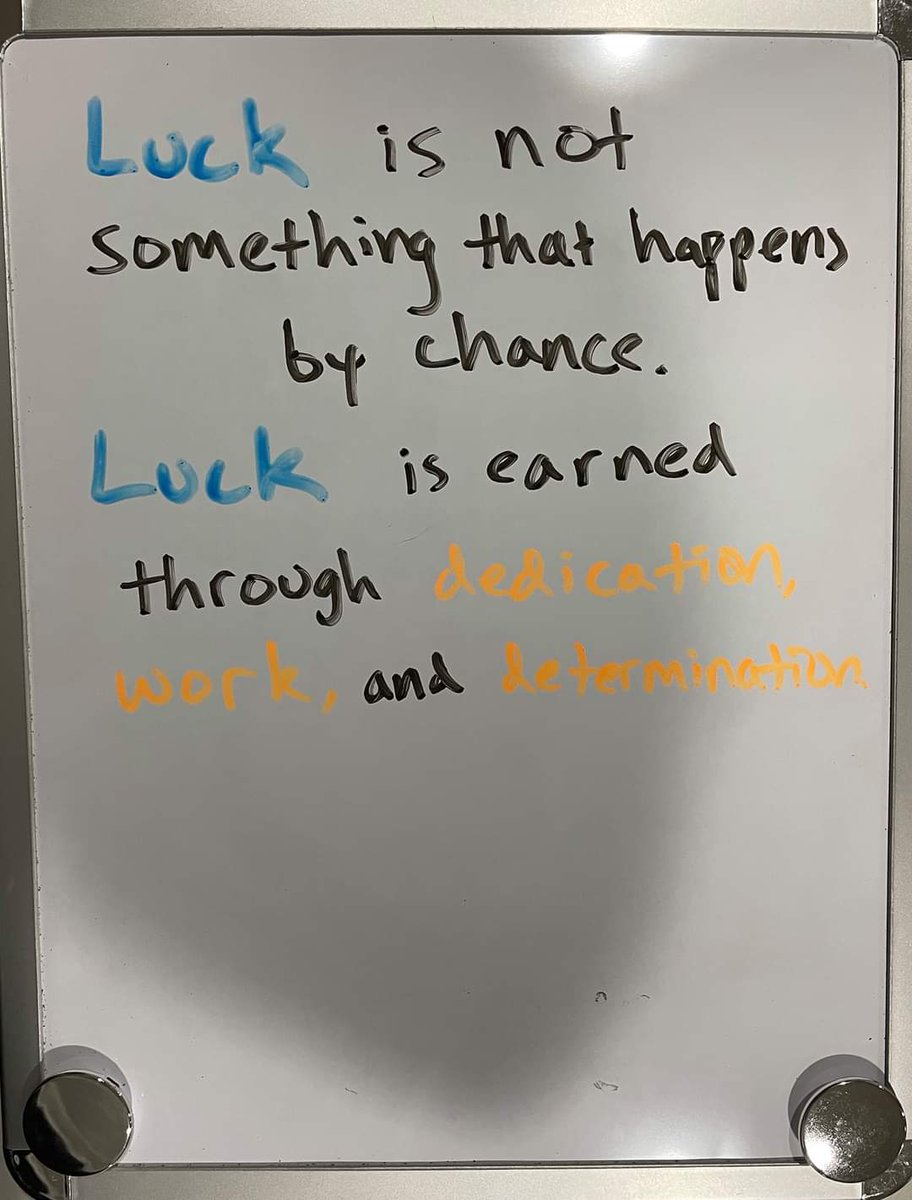 Luck is not
something that happens
by chance.
Luck is earned
through dedication,
work, and determination.